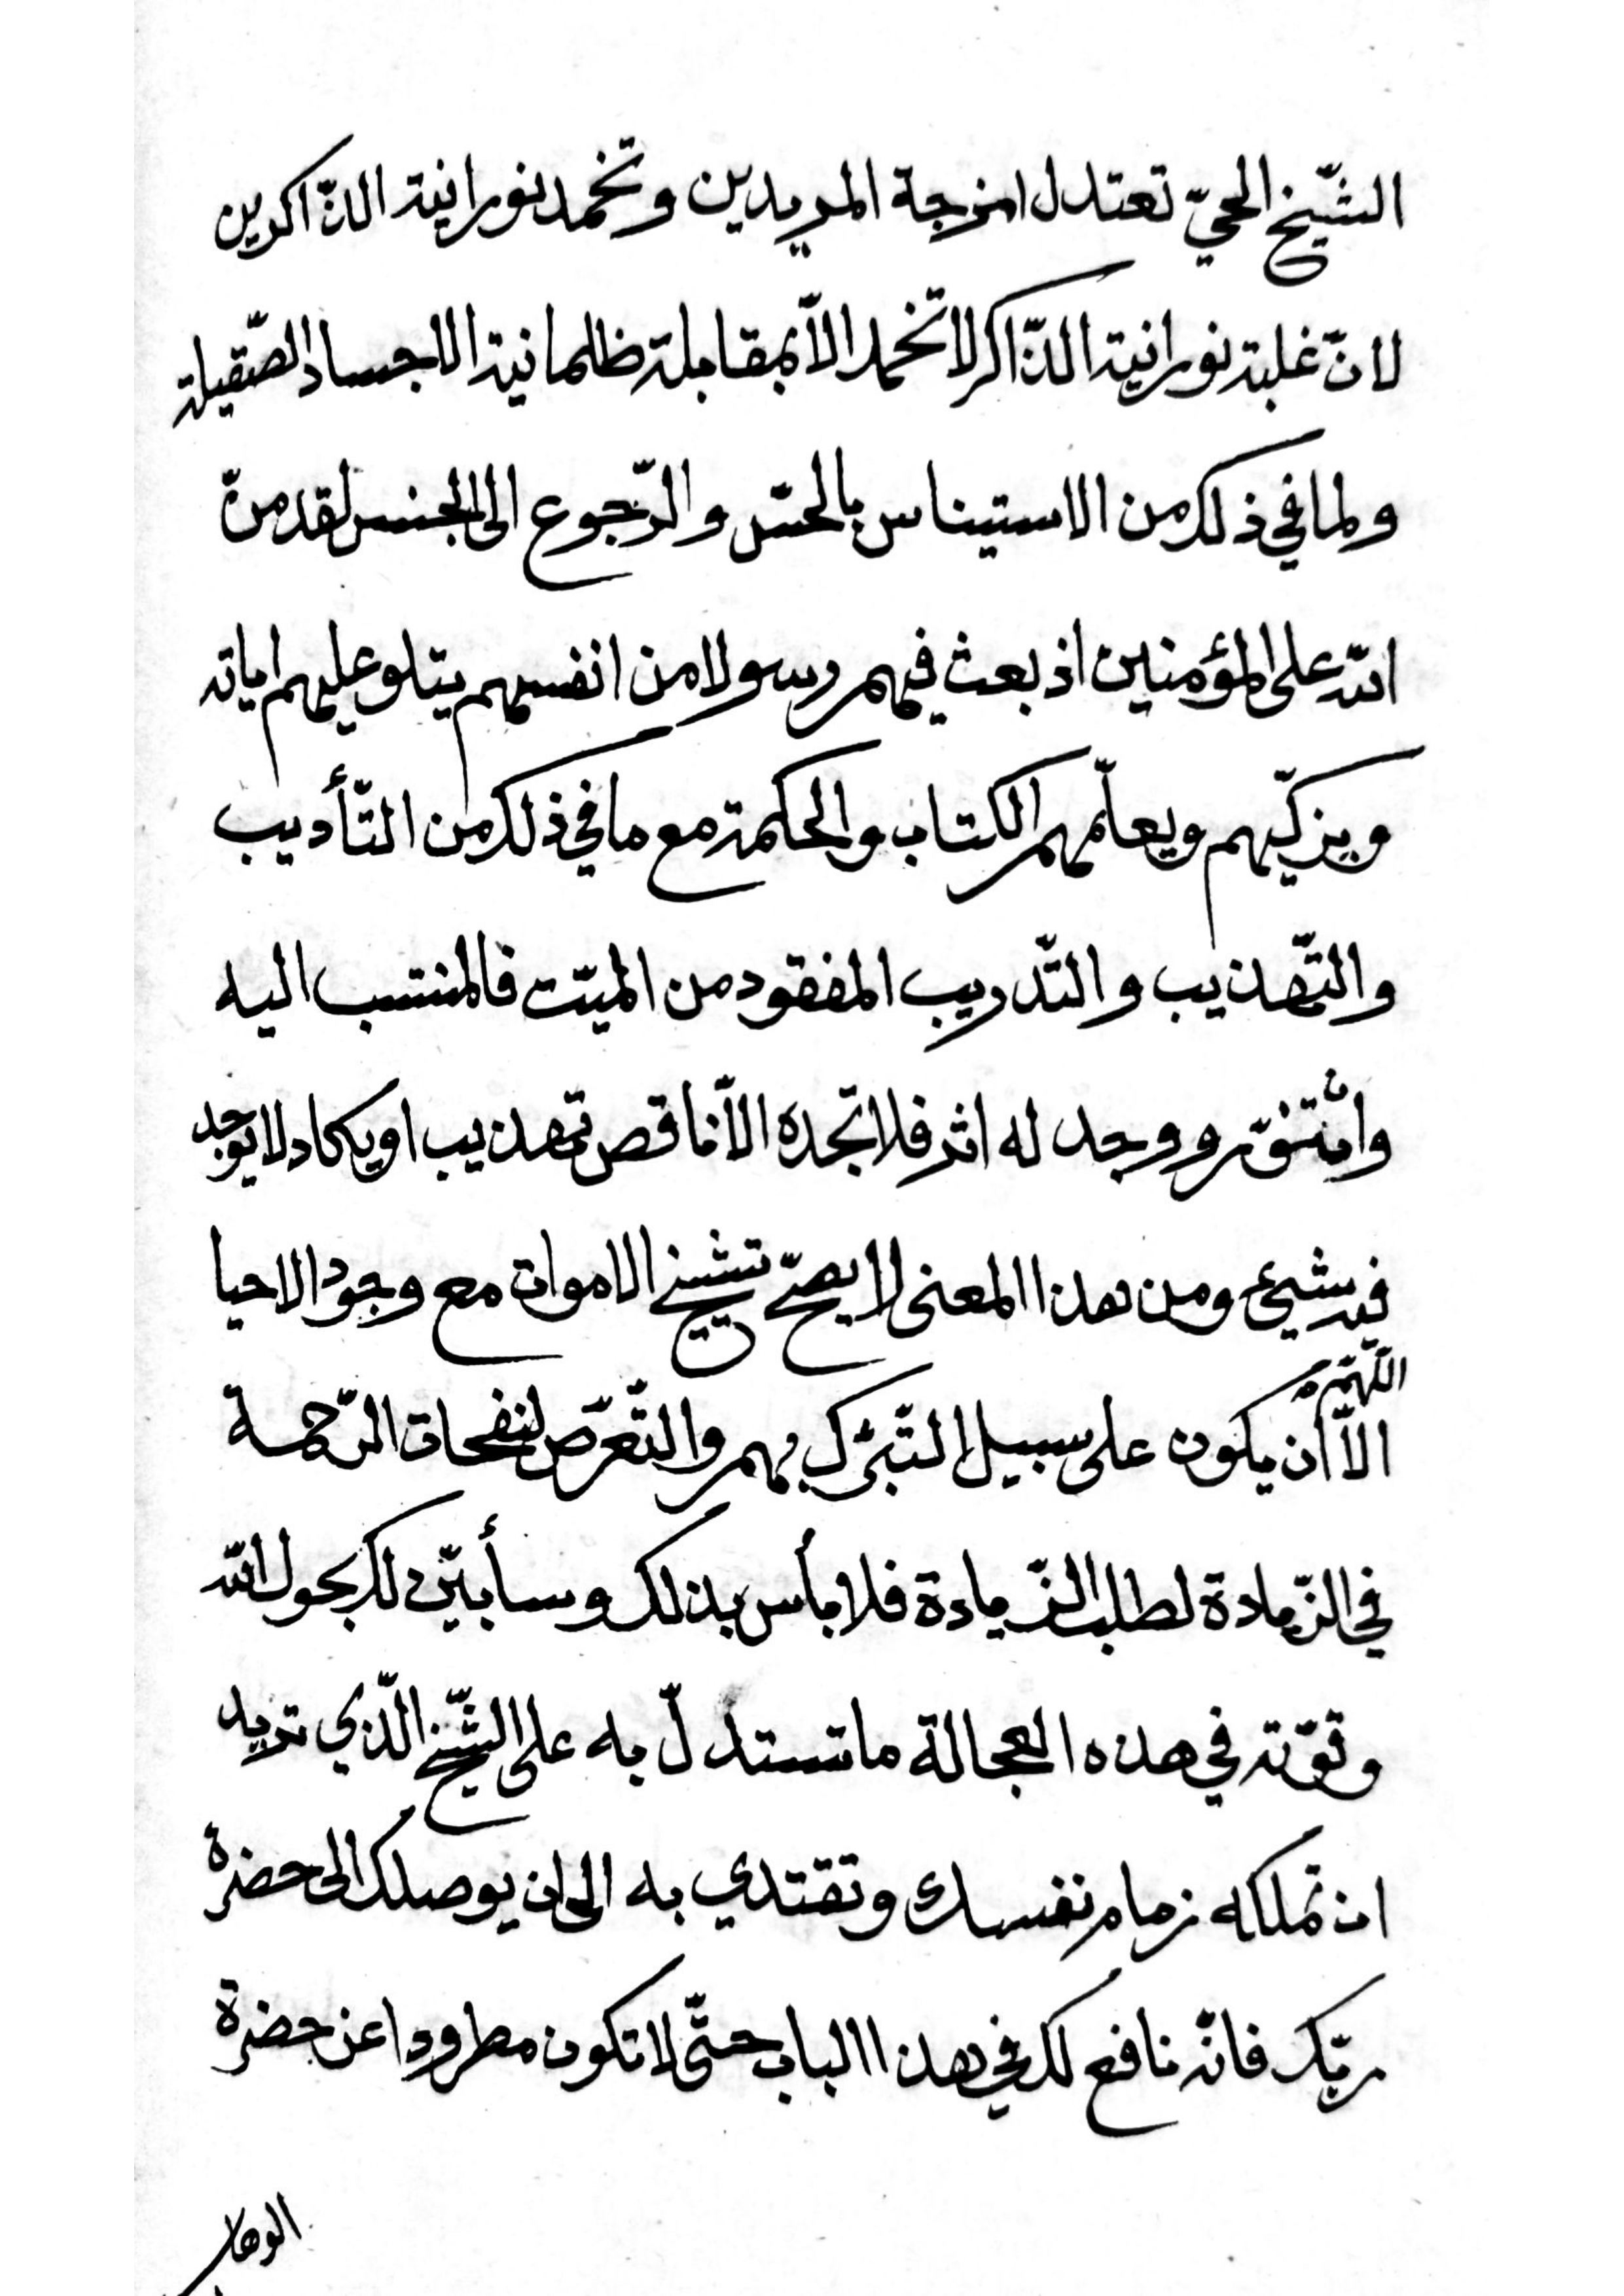 الشّيخ الحيّ تعتدل امزجة المريدين وتخمد نورانية الذّاكرين
لانّ غلبة نورانية الذّاكر لا تخمد الاّ بمقابلة ظلمانية الاجساد الصّقيلة
ولما في ذلك من الاستيناس بالحسّ والرّجوع الى الجنس لقد منّ
الله على المؤمنين اذ بعث فيهم رسولا من انفسهم يتلو عليهم اياته
ويزكّيهم ويعلّمهم الكتاب والحكمة مع ما في ذلك من التّأديب
والتّهذيب والتّدريب المفقود من الميّت فالمنتسب اليه
وان تنوّر ووجد له اثر فلا تجده الاّ ناقص تهذيب او يكاد لا يوجد
فيه شيئ ومن هذا المعنى لا يصحّ تشييخ الاموات مع وجود الاحيا
اللّهمّ
الاّ أن يكون على سبيل التّبرّك بهم والتّعرّض لنفحات الرّحمة
في الزّيادة لطلب الزّيادة فلا بأس بذلك وسأبيّن لك بحول الله
وقوّته في هذه العجالة ما تستدلّ به على الشّيخ الّذي تريد
ان تملكه زمام نفسك وتقتدي به الى ان يوصلك الى حضرة
ربّك فانّه نافع لك في هذا الباب حتّى لا تكون مطرودا عن حضرة